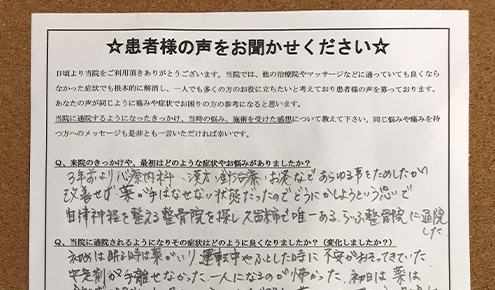 ☆患者様の声をお聞かせください☆
日頃より当院をご利用頂きありがとうございます。当院では、他の治療院やマッサージなどに通っていても良くならな
かった症状でも根本的に解消し、一人でも多くの方のお役に立ちたいと考えており患者様の声を募っております。
あなたの声が同じように痛みや症状でお困りの方の参考になると思います。
当院に通院するようになったきっかけ、当時の悩み、施術を受けた感想について教えて下さい。同じ悩みや痛みを持
つ方へのメッセージも是非とも一言いただければ幸いです。
Q、来院のきっかけや、最初はどのような症状やお悩みがありましたか?
3年前より心療内科 漢方 針治療 お灸などあらゆる事をためしたが
改善せず 薬が手はなせない状態だったのでどうにかしようという思いで
自律神経を整える整骨院を探し久留米で唯一ある、らいふ整骨院に通院
した
Q、当院に通院されるようになりその症状はどのように良くなりましたか?(変化しましたか?)
初めは眠る時は薬がいり 運転中やふとした時に不安がおそってきていた
安定剤が手離せなかった。一人になるのが怖かった。初日は薬は